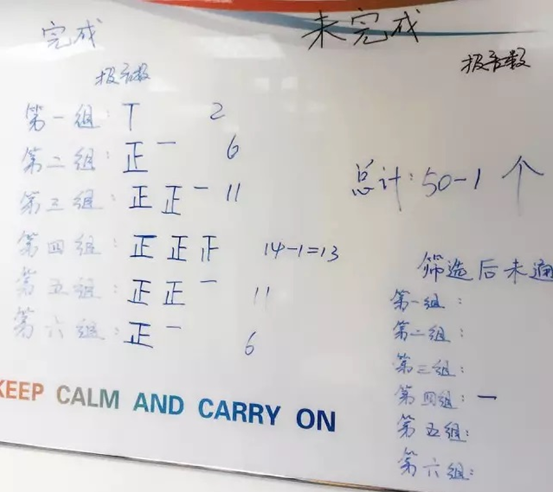 完成
未完成
报音数
报音数
第一组: 丅 2
第二组: 正一 6
第三组: 正正一 11
第四组: 正正正 14-1=13
第五组: 正正一 11
第六组: 正一 6
总计: 50-1 个
筛选后未通
第一组:
第二组:
第三组:
第四组: 一
第五组:
第六组:
KEEP CALM AND CARRY ON